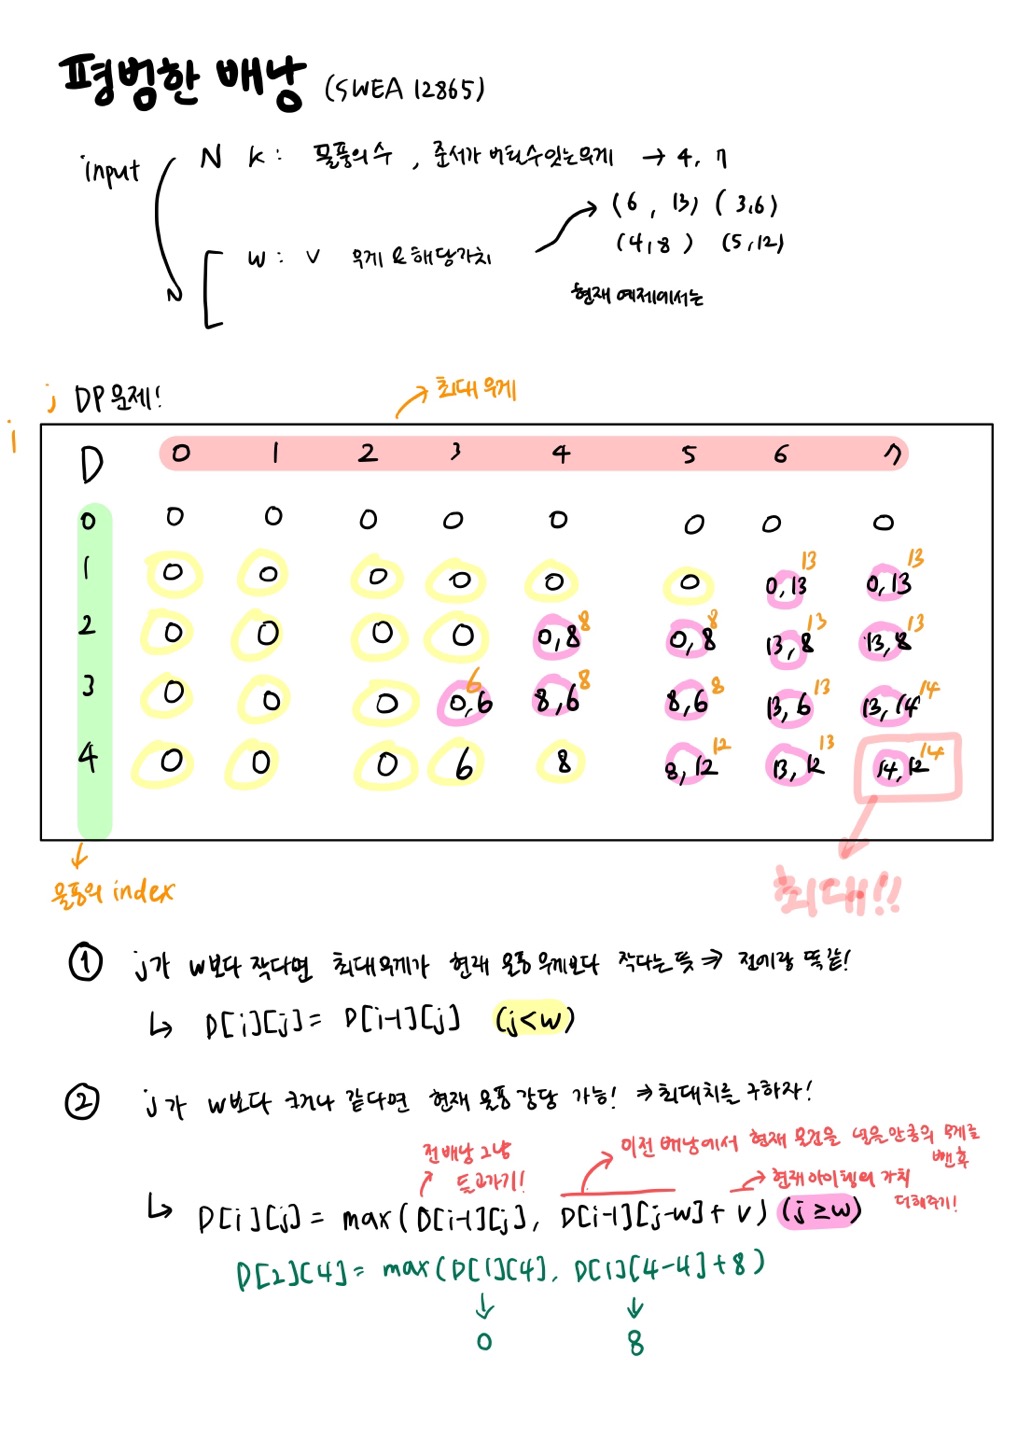 평범한 배낭 (SWEA 12865)
input N K : 물품의 수 , 준서가 버틸수있는무게 → 4, 7
(6 , 13) (3,6)
(4,8) (5,12)
N [ W : V 무게 & 해당가치
현재 예제에서는
j DP 문제! → 최대 무게
i
D 0 1 2 3 4 5 6 7
0 0 0 0 0 0 0 0 0
1 0 0 0 0 0 0 0,13 13 0,13 13
2 0 0 0 0 0,8 8 0,8 8 13,8 13 13,8 13
3 0 0 0 0,6 6 8,6 8 8,6 8 13,6 13 13,14 14
4 0 0 0 6 8 8,12 12 13,12 13 14,12 14
물품의 index
최대!!
① j가 w보다 작다면 최대무게가 현재 물품 무게보다 작다는 뜻 ⇒ 전이랑 똑같!
↳ D[i][j] = D[i-1][j] (j<w)
② j가 w보다 크거나 같다면 현재 물품 감당 가능! ⇒ 최대치를 구하자!
전배낭 그냥
들고가기!
이전 배낭에서 현재 물건을 넣을만큼의 무게를
뺀후
현재아이템의 가치
더해주기!
↳ D[i][j] = max(D[i-1][j], D[i-1][j-w]+v) (j≥w)
D[2][4] = max(D[1][4], D[1][4-4]+8)
↓ ↓
0 8